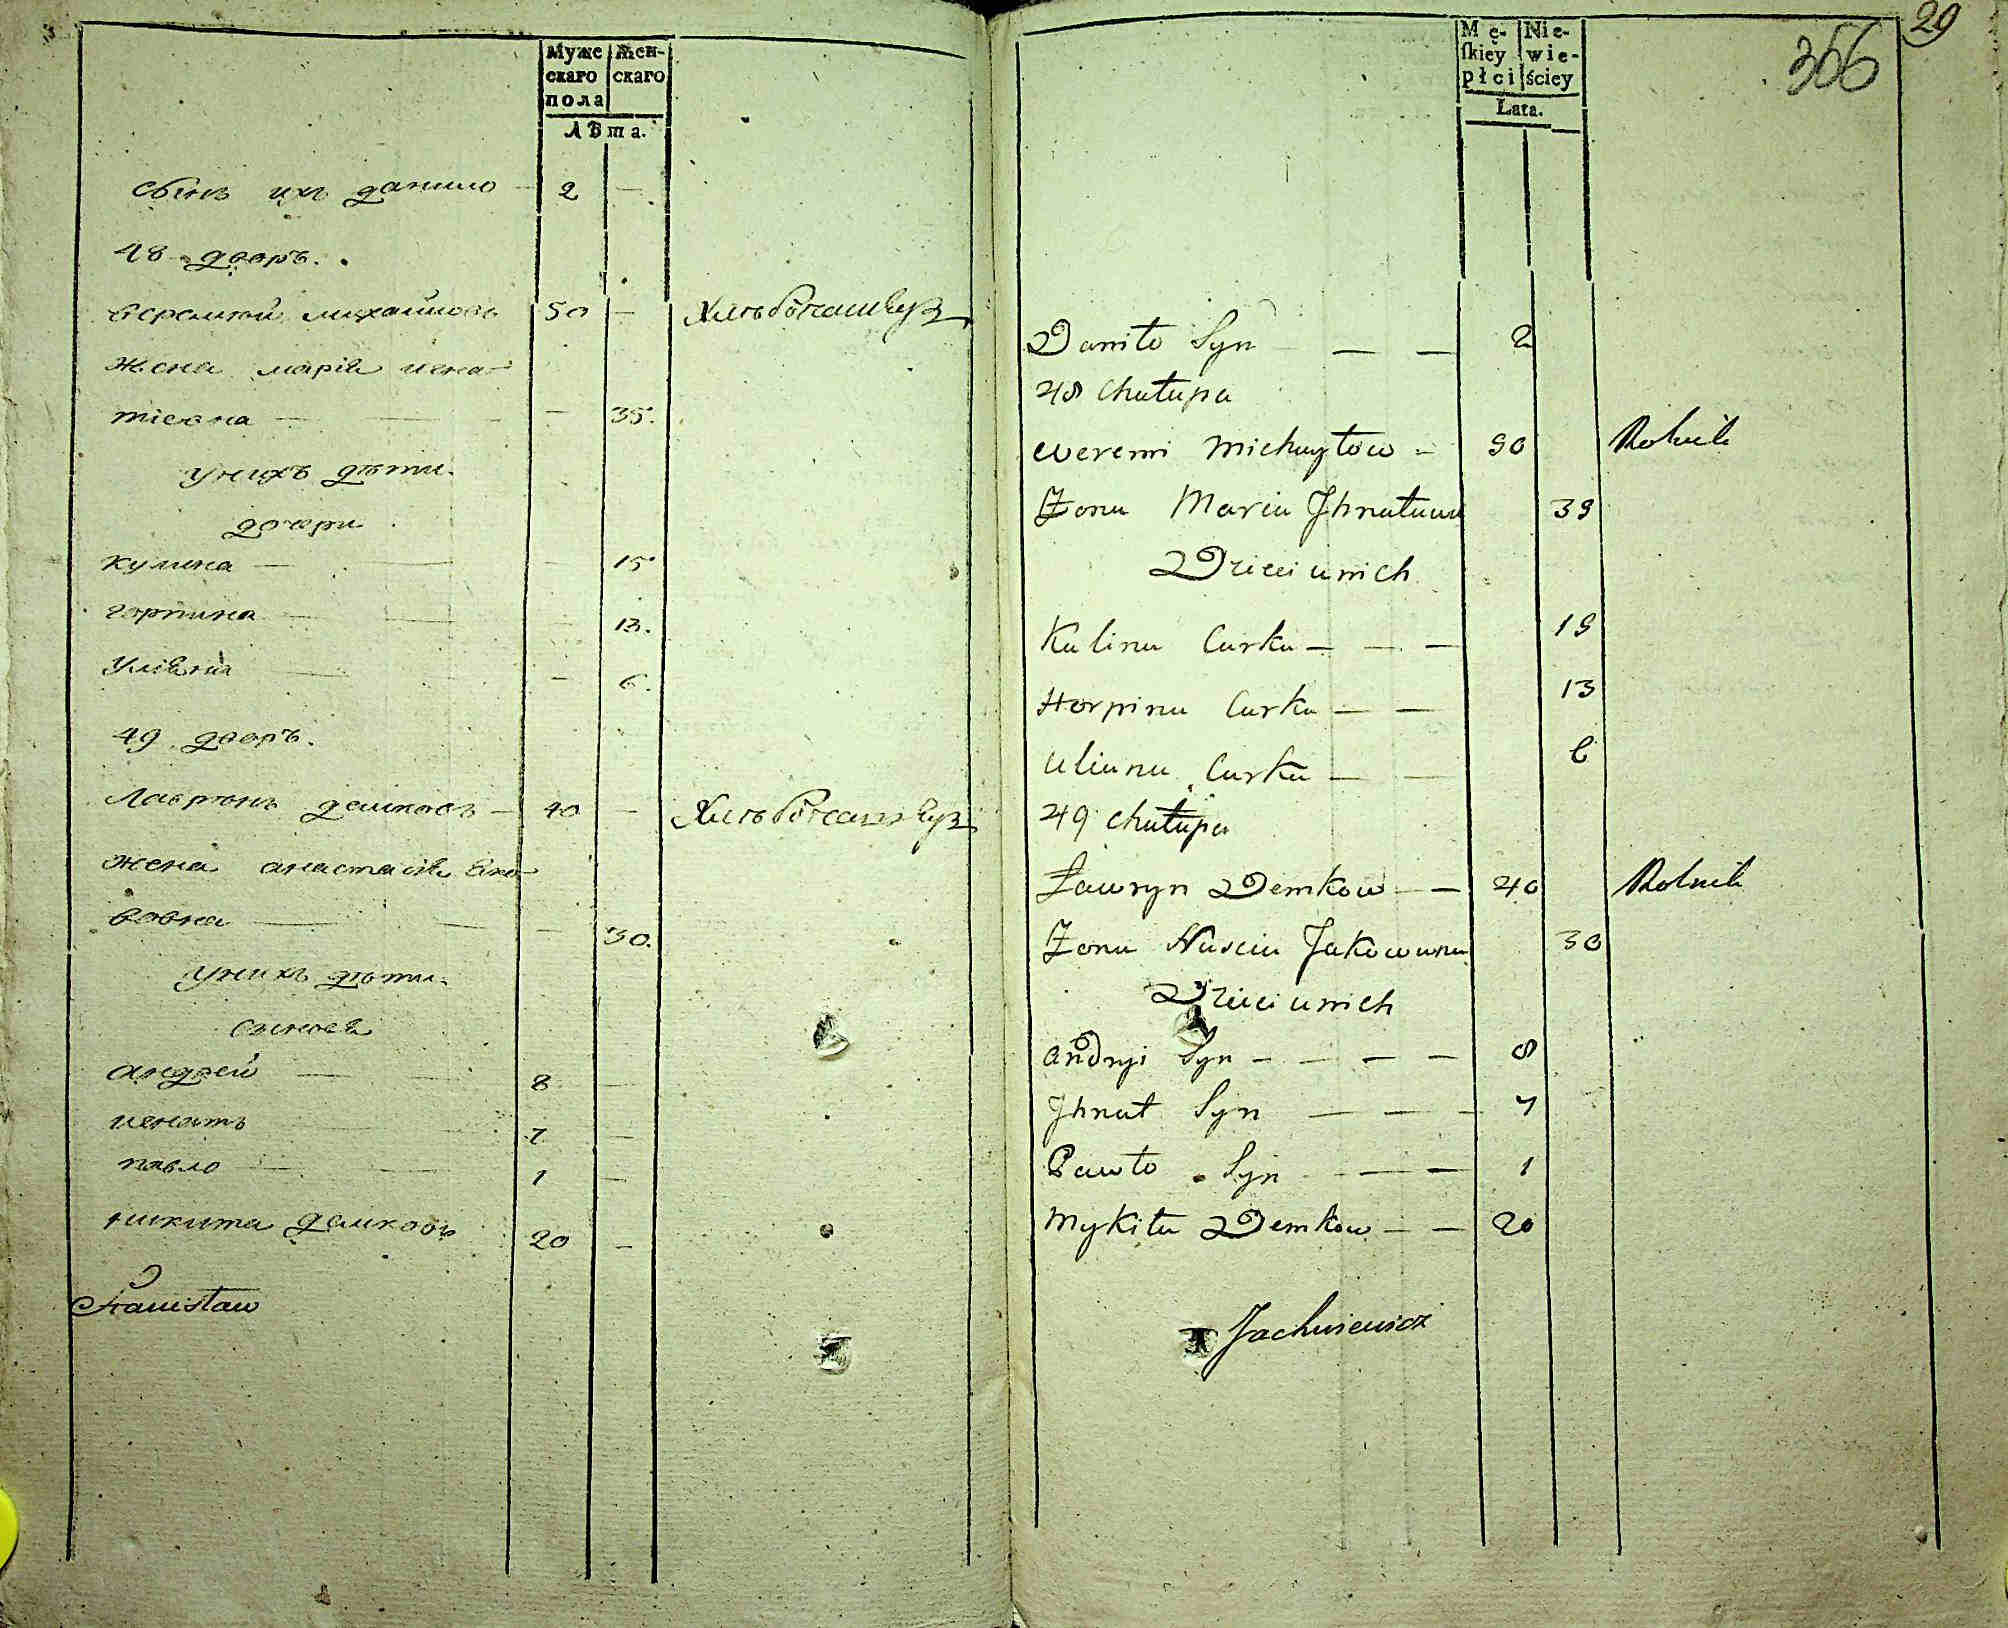 Муже Жен-
скаго скаго
пола
Лѣта.
сынъ ихъ данило - 2 -
48 дворъ.
веремѣй михайловъ 50 - Хлѣбопашецъ
жена марія игна-
тіевна - - 35.
у нихъ дѣти.
дочери
кулина - - 15
горпина - - 13.
уліяна - - 6.
49 дворъ.
лавринъ демковъ - 40 - Хлѣбопашецъ
жена анастасія яко-
вовна - - 30.
у нихъ дѣти.
сыновя
андрей - 8 -
игнатъ - 7 -
павло - 1 -
никита демковъ 20 -
Stanisław
29
366
Mę- Nie-
skiey wie-
płci ściey
Lata.
Daniło Syn - - 2
48 Chałupa
Weremi Michayłow - 50 Rolnik
Żona Maria Jhnatuwna 35
Dzieci u nich
Kulina Curka - - - 15
Horpina Curka - - 13
Uliana Curka - - 6
49 Chałupa
Ławryn Demkow - - 40 Rolnik
Żona Nascia Jakowuwna 30
Dzieci u nich
Andryi Syn - - - - 8
Jhnat Syn - - - 7
Pawło Syn - - - 1
Mykita Demkow - - 20
Jachniewicz